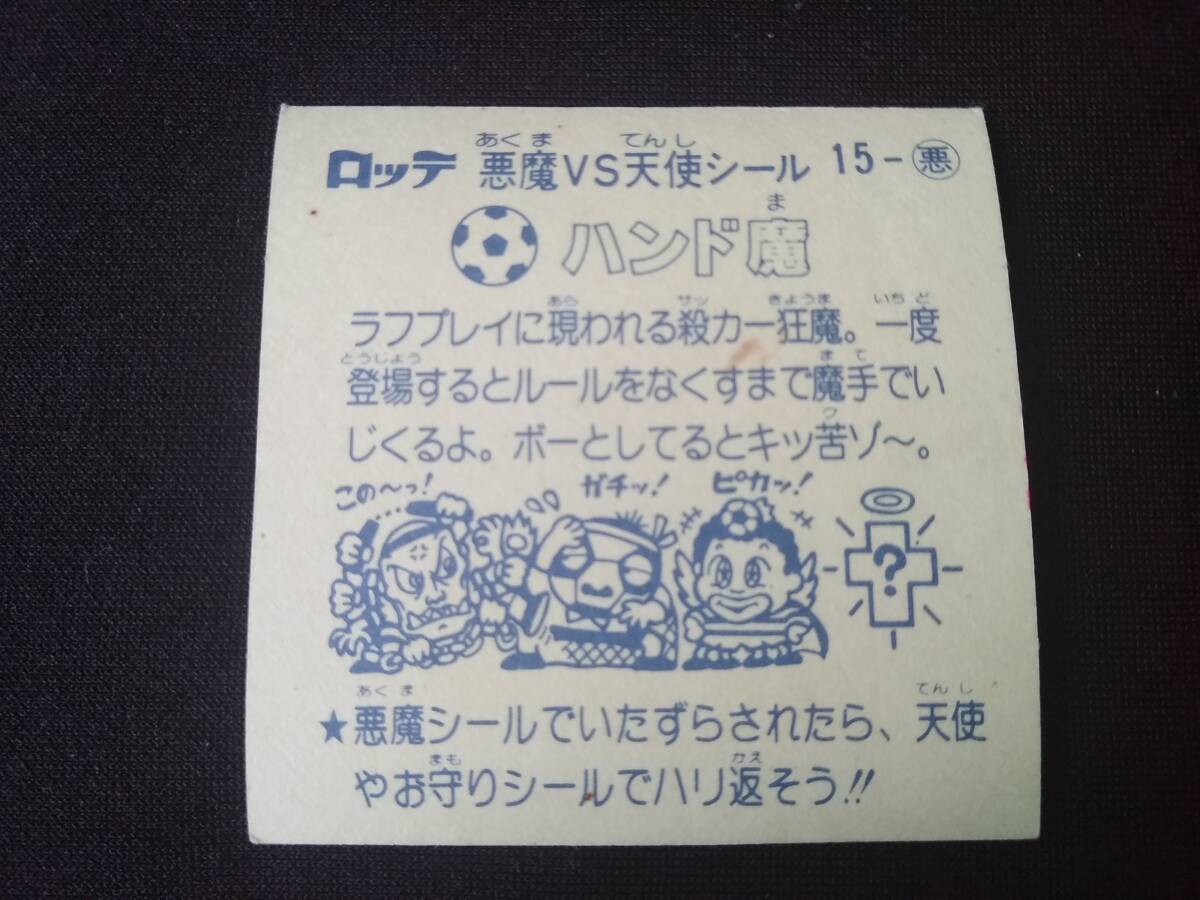 ロッテ 悪魔VS天使シール 15-悪
あくま てんし
ハンド魔
ま
ラフプレイに現われる殺カー狂魔。一度
あら サッ きょうま いちど
登場するとルールをなくすまで魔手でい
とうじょう まて
じくるよ。ボーとしてるとキッ苦ゾ〜。
ク
この〜っ! ガチッ! ピカッ!
?
★悪魔シールでいたずらされたら、天使
あくま てんし
やお守りシールでハリ返そう!!
まも かえ